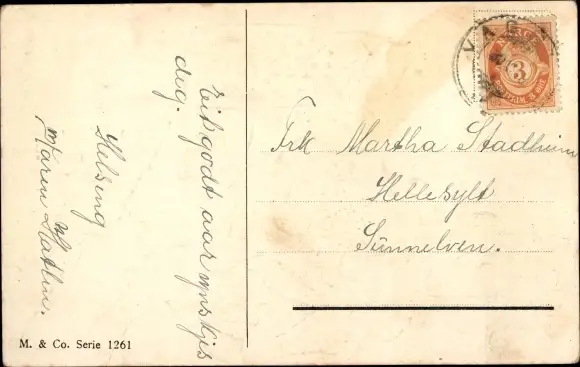 Eit godt aar ynskjs
deg.
Helsing
Maren
Frk Martha Stadheim
Hellesylt
Sunnelven.
NORGE
3
M. & Co. Serie 1261